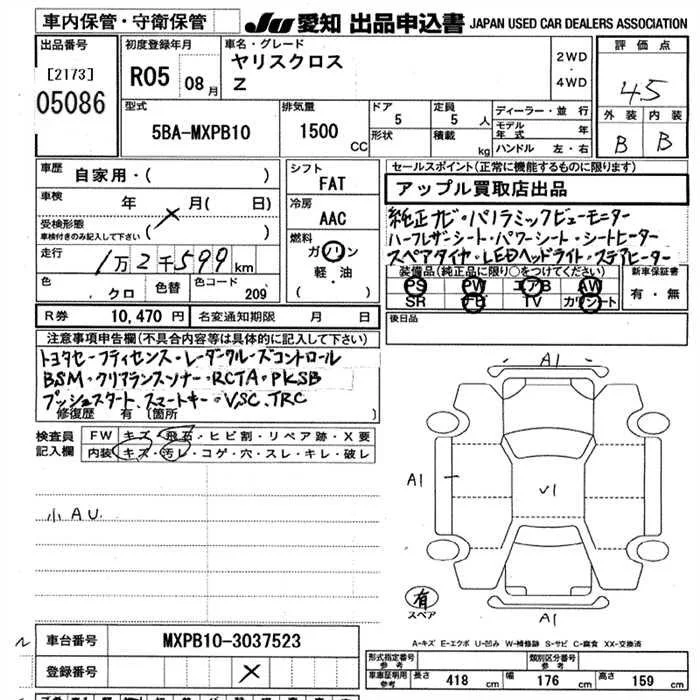 車内保管・守衛保管
JU 愛知 出品申込書 JAPAN USED CAR DEALERS ASSOCIATION
出品番号
[2173]
05086
初度登録年月
R05 08月
車名・グレード
ヤリスクロス
Z
2WD
・
4WD
評価点
4.5
外装 内装
B B
型式
5BA-MXPB10
排気量
1500 CC
ドア
5
形状
定員
5 人
積載
kg
ディーラー・並行
モデル年式 年
ハンドル 左・右
車歴
自家用・( )
車検
年 月( 日)
受検形態
車検付きのみ記入して下さい ( )
走行
1万2千599km
色
クロ
色替
色コード
209
シフト
FAT
冷房
AAC
燃料
ガソリン
軽・油
( )
セールスポイント(正常に機能するものに限ります)
アップル買取店出品
純正ナビ・パノラミックビューモニター
ハーフレザーシート・パワーシート・シートヒーター
スペアタイヤ・LEDヘッドライト・ステアヒーター
装備品(純正品に限り○をつけてください)
PS PW エアB AW
SR TV カワシート
新車保証書
有・無
R券 10,470 円 名変通知期限 月 日
後日品
注意事項申告欄(不具合内容等は具体的に記入して下さい)
トヨタセーフティセンス・レーダークルーズコントロール
BSM・クリアランスソナー・RCTA・PKSB
プッシュスタート、スマートキー・VSC、TRC
修復歴 有 (箇所 )
検査員記入欄
FW キズ・飛石・ヒビ割・リペア跡・X要
内装 キズ・汚レ・コゲ・穴・スレ・キレ・破レ
小AU
A1
A1
V1
A1
有
スペア
A-キズ E-エクボ U-凹み W-補修跡 S-サビ C-腐食 XX-交換済
車台番号
MXPB10-3037523
登録番号
×
形式指定番号
参考
類別区分番号
参考
車庫証明用
参考
長さ 418 cm 幅 176 cm 高さ 159 cm